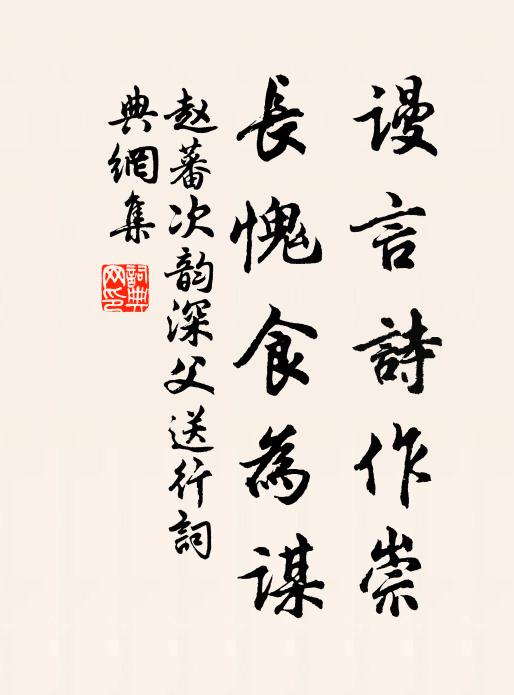 謾言詩作崇
長愧食為謀
赵蕃次韵深父送行詞
典網集
詞典
网印